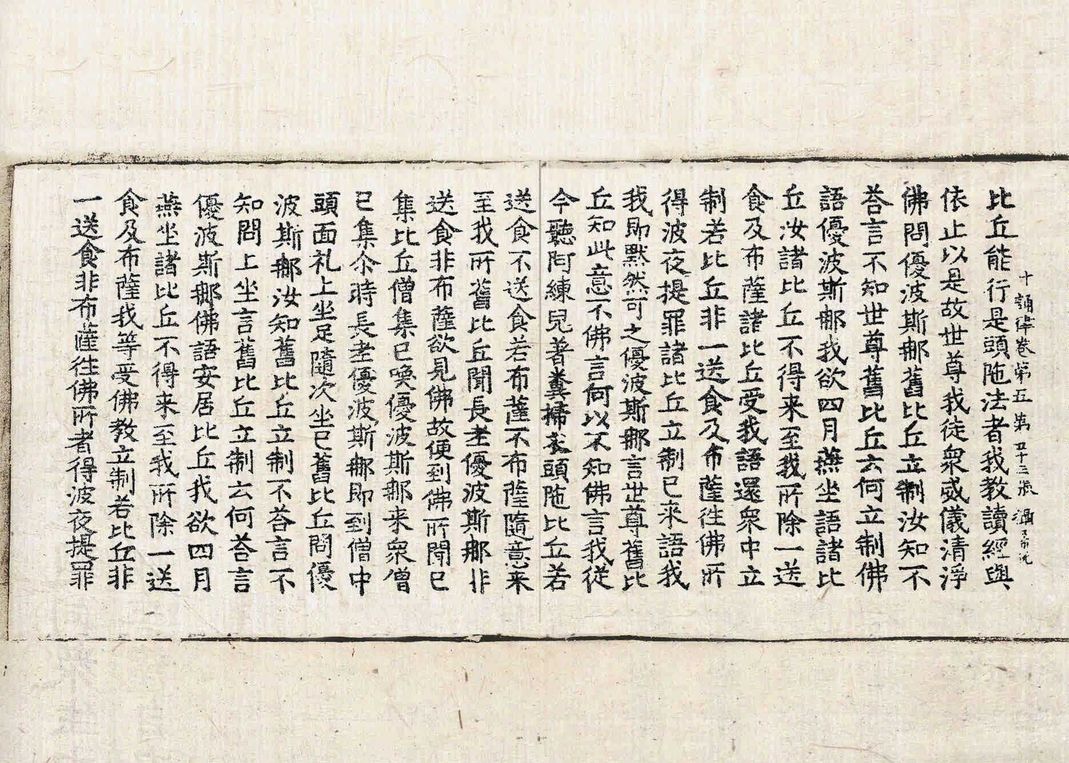 比丘能行是頭陁法者我教讀經與
十誦律卷第五 第 張
依止以是故世尊我徒衆威儀清淨
佛問優波斯郍舊比丘立制汝知不
荅言不知世尊舊比丘云何立制佛
語優波斯郍我欲四月燕坐語諸比
丘汝諸比丘不得来至我所除一送
食及布薩諸比丘受我語還衆中立
制若比丘非一送食及布薩徃佛所
得波夜提罪諸比丘立制已来語我
我即默然可之優波斯郍言世尊舊比
丘知此意不佛言何以不知佛言我從
今聽阿練兒著糞掃衣頭陁比丘若
送食不送食若布薩不布薩隨意来
至我所舊比丘聞長老優波斯郍非
送食非布薩欲見佛故便到佛所聞已
集比丘僧集已喚優波斯郍来衆僧
已集尒時長老優波斯郍即到僧中
頭面礼上坐足隨次坐已舊比丘問優
波斯郍汝知舊比丘立制不荅言不
知問上坐言舊比丘立制云何荅言
優波斯郍佛語安居比丘我欲四月
燕坐諸比丘不得来至我所除一送
食及布薩我等受佛教立制若比丘非
一送食非布薩徃佛所者得波夜提罪